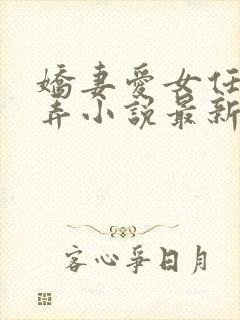 嬌妻愛女任
弄小說最新
客心爭日月